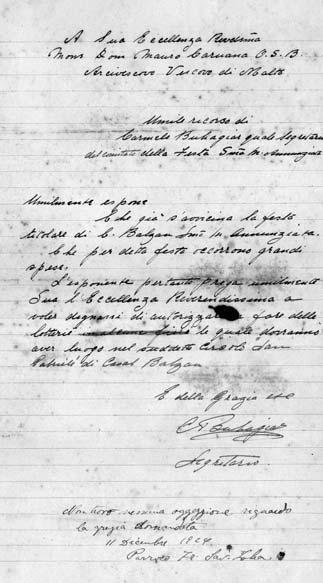 A Sua Eccellenza Revdsma
Mons Dom Mauro Caruana O.S.B
Arcivescovo Vescovo di Malta
Umile ricorso di
Carmelo Buhagiar quale Segretario
del comitato della Festa SSma N. Annunziata
Umilmente espone
Che già s'avvicina la festa
titolare di C. Balzan SSma N. Annunziata.
Che per detta festa occorrono grandi
spese.
L'esponente pertanto prega umilmente
Sua l'Eccellenza Reverendissima a
voler degnarsi di autorizzare a fare delle
lotterie le quale dovranno
aver luogo nel suddetto Circolo San
Gabriele di Casal Balzan
E della Grazia etc
C Buhagiar
Segretario.
Non trovo nessuna oggezione riguardo
la grazia domandata
11 Dicembre 1924
Parroco